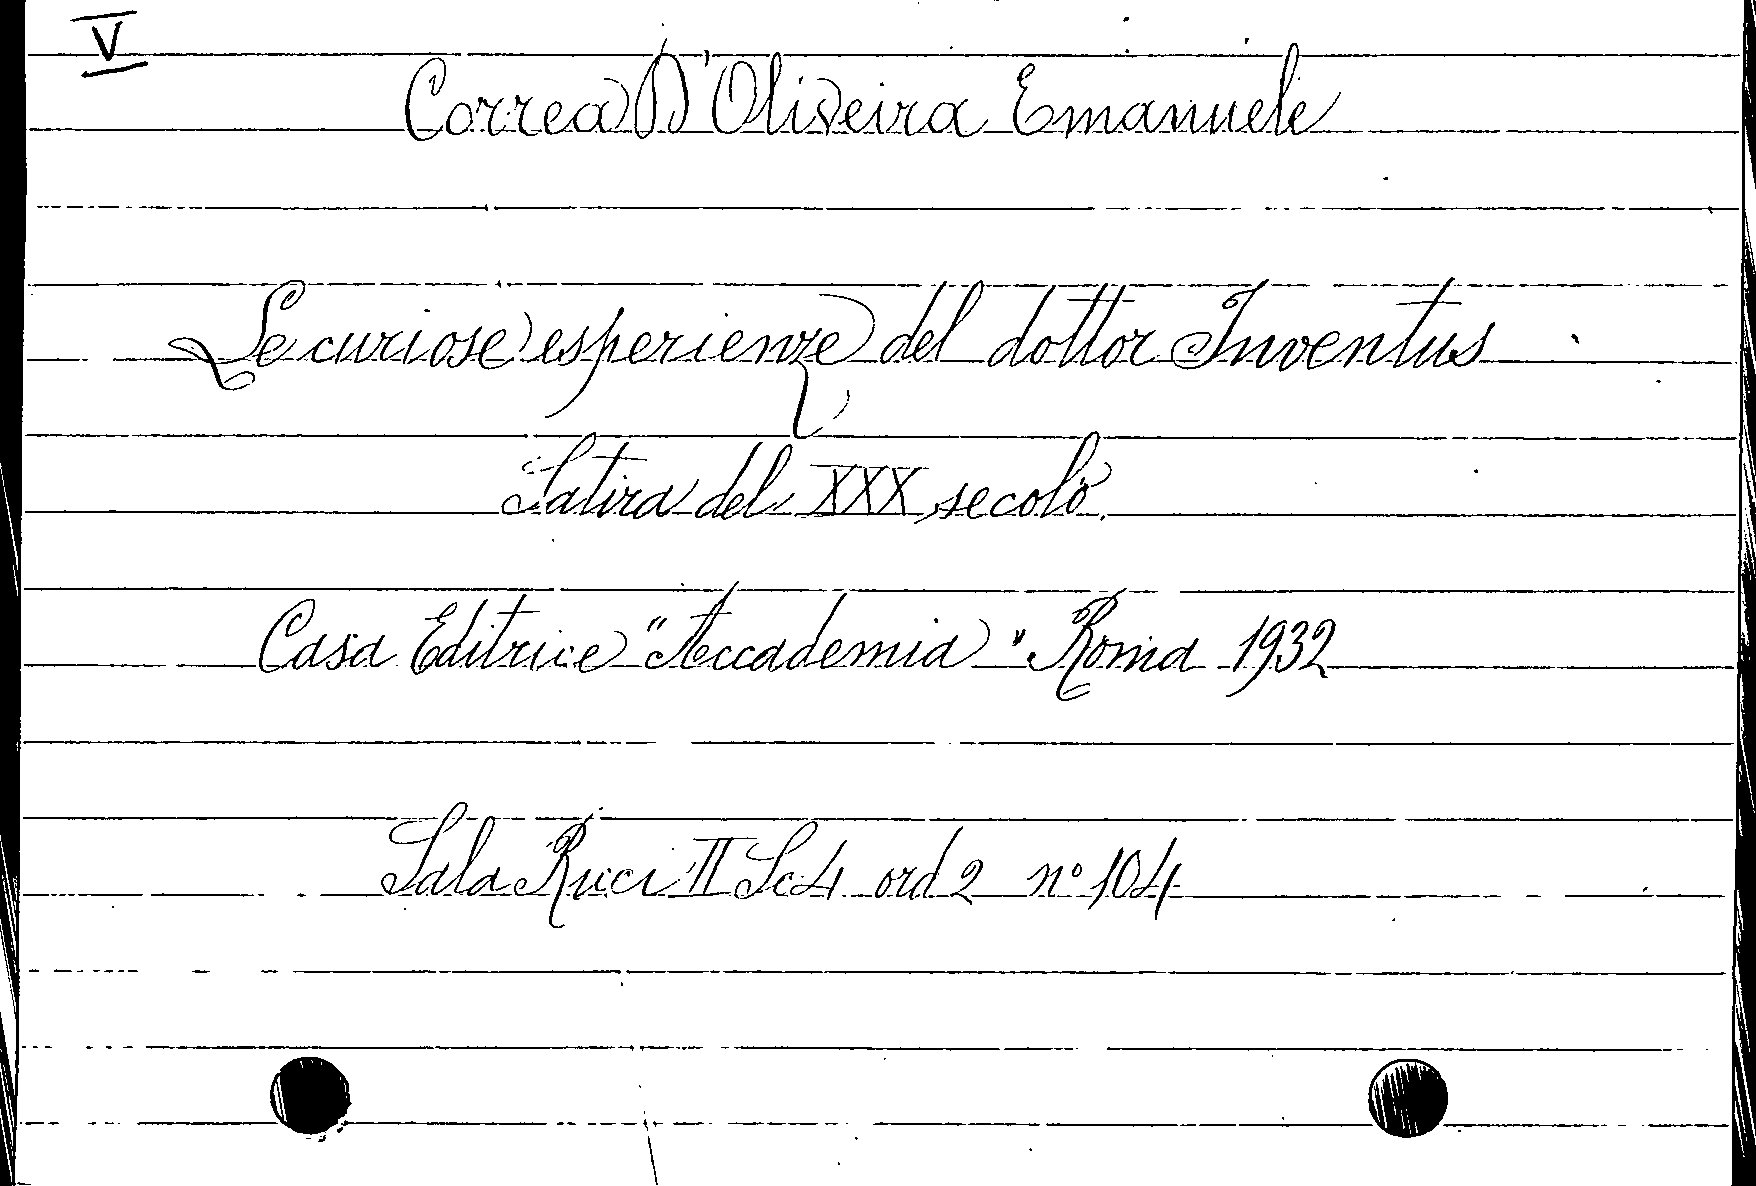 V
Correa D'Oliveira Emanuele
Le curiose esperienze del dottor Inventus
Satira del XXX secolo.
Casa Editrice "Accademia" Roma 1932
Sala Ricci II Sc4 ord 2 nº 104